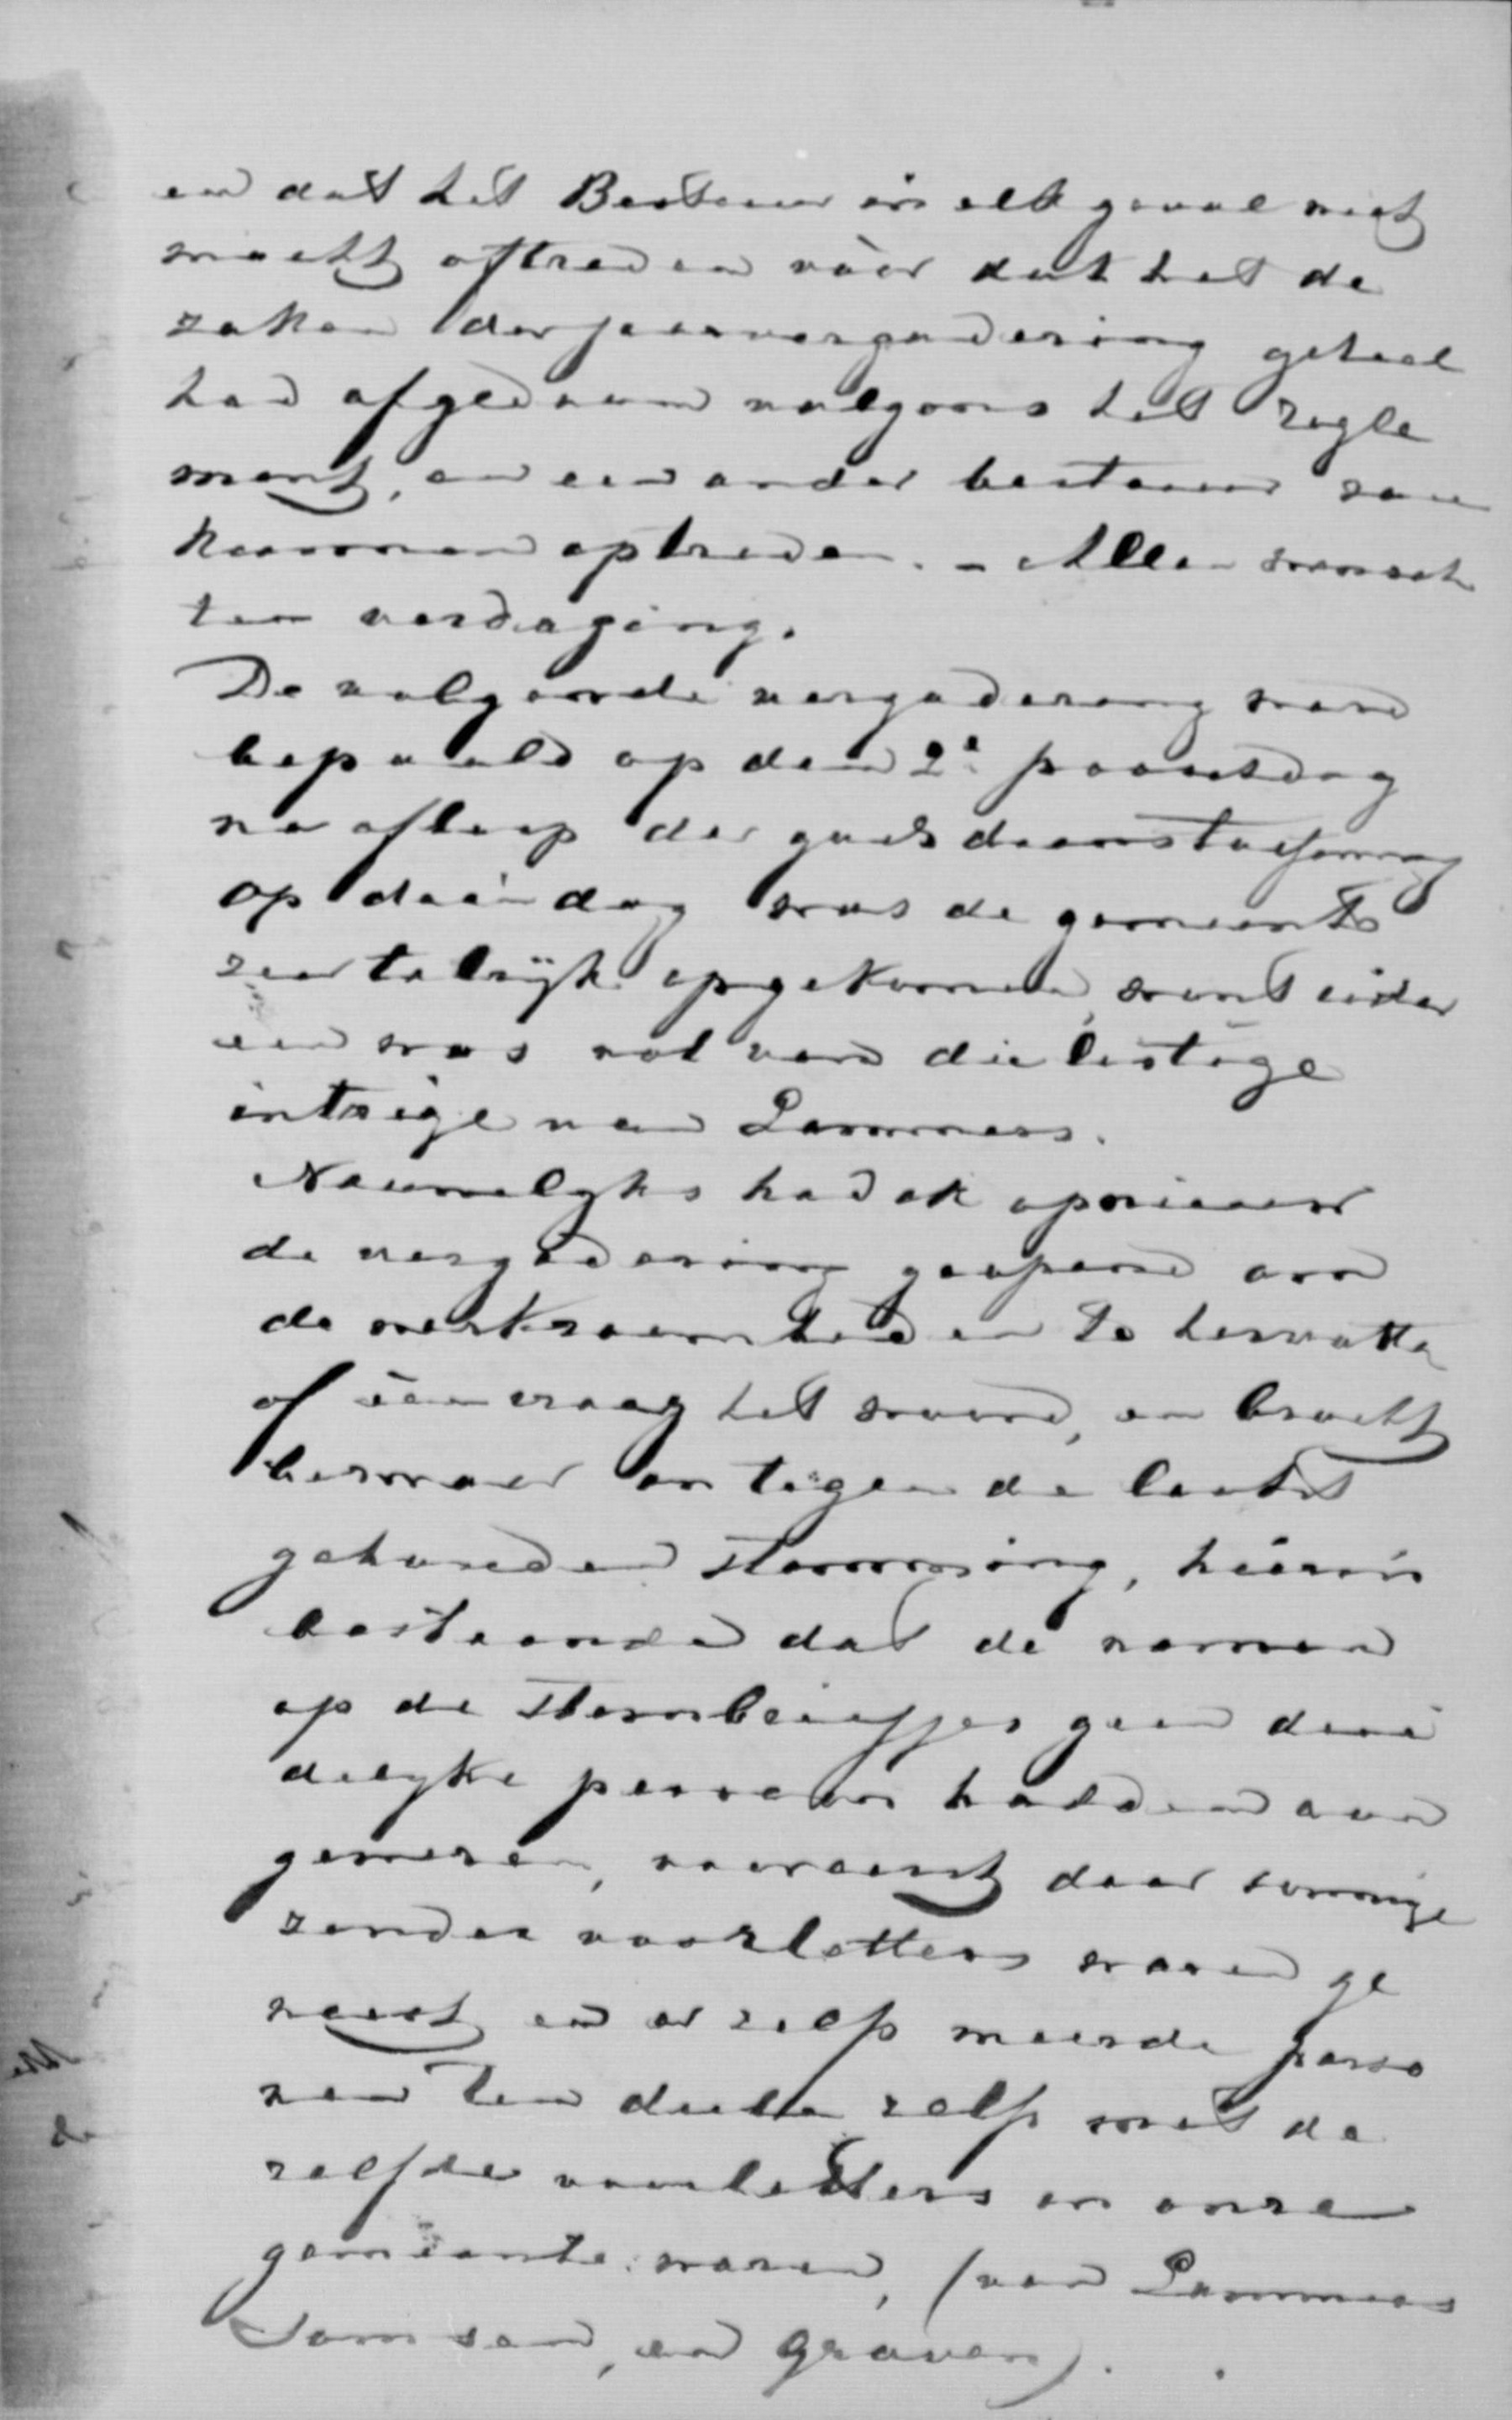 en dat het Bestuur in elk geval niet
mocht aftreden vòòr dat het de
zaken der jaarvergadering geheel
had afgedaan volgens het regle
ment, en een ander bestuur zou
kunnen optreden. – Allen wensch
ten verdaging.
De volgende vergadering werd
bepaald op den 2e paaschdag
na afloop der godsdienstoefening
op dien dag was de gemeente
zeer talrijk opgekomen, want ieder
een was vol van die listige
intrige van Lammers.
Nauwelyks had ik opnieuw
de vergadering geopend om
de werkzaamheden te hervatte
of één vraag het woord, en bracht
bezwaar in tegen de laatst
gehouden stemming, hierin
bestaande dat de namen
op de stembriefjes geen dui
delyke persoon hadden aan
gewezen, vooreerst daar sommige
zonder voorletters waren ge
weest en er zelfs meerde perso
nen ten deele zelfs met de
zelfde voorletters in onze
gemeente waren, (van Lammers
Jansen, en Graven).